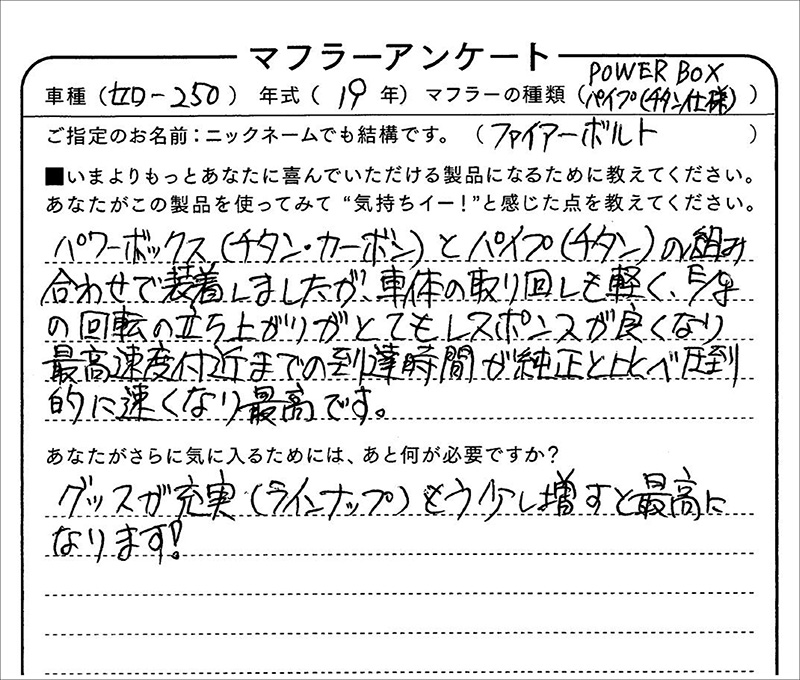 マフラーアンケート
車種（セロー250） 年式（19年） マフラーの種類（POWER BOX パイプ（チタン仕様））
ご指定のお名前：ニックネームでも結構です。（ファイアーボルト）
■いまよりもっとあなたに喜んでいただける製品になるために教えてください。
あなたがこの製品を使ってみて“気持ちイー！”と感じた点を教えてください。
パワーボックス（チタン・カーボン）とパイプ（チタン）の組み
合わせで装着しましたが、車体の取り回しも軽く、E/g
の回転の立ち上がりがとてもレスポンスが良くなり
最高速度付近までの到達時間が純正と比べ圧倒
的に速くなり最高です。
あなたがさらに気に入るためには、あと何が必要ですか？
グッスが充実（ラインナップ）もう少し増すと最高に
なります!